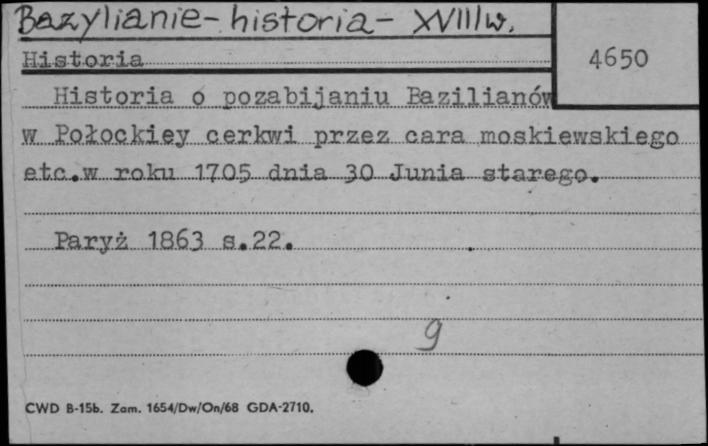 Bazylianie - historia - XVIII w.
4650
Historia
Historia o pozabijaniu Bazilianów
w Połockiey cerkwi przez cara moskiewskiego
etc.w roku 1705 dnia 30 Junia starego.
Paryż 1863 s.22.
g
CWD B-15b. Zam. 1654/Dw/On/68 GDA-2710.